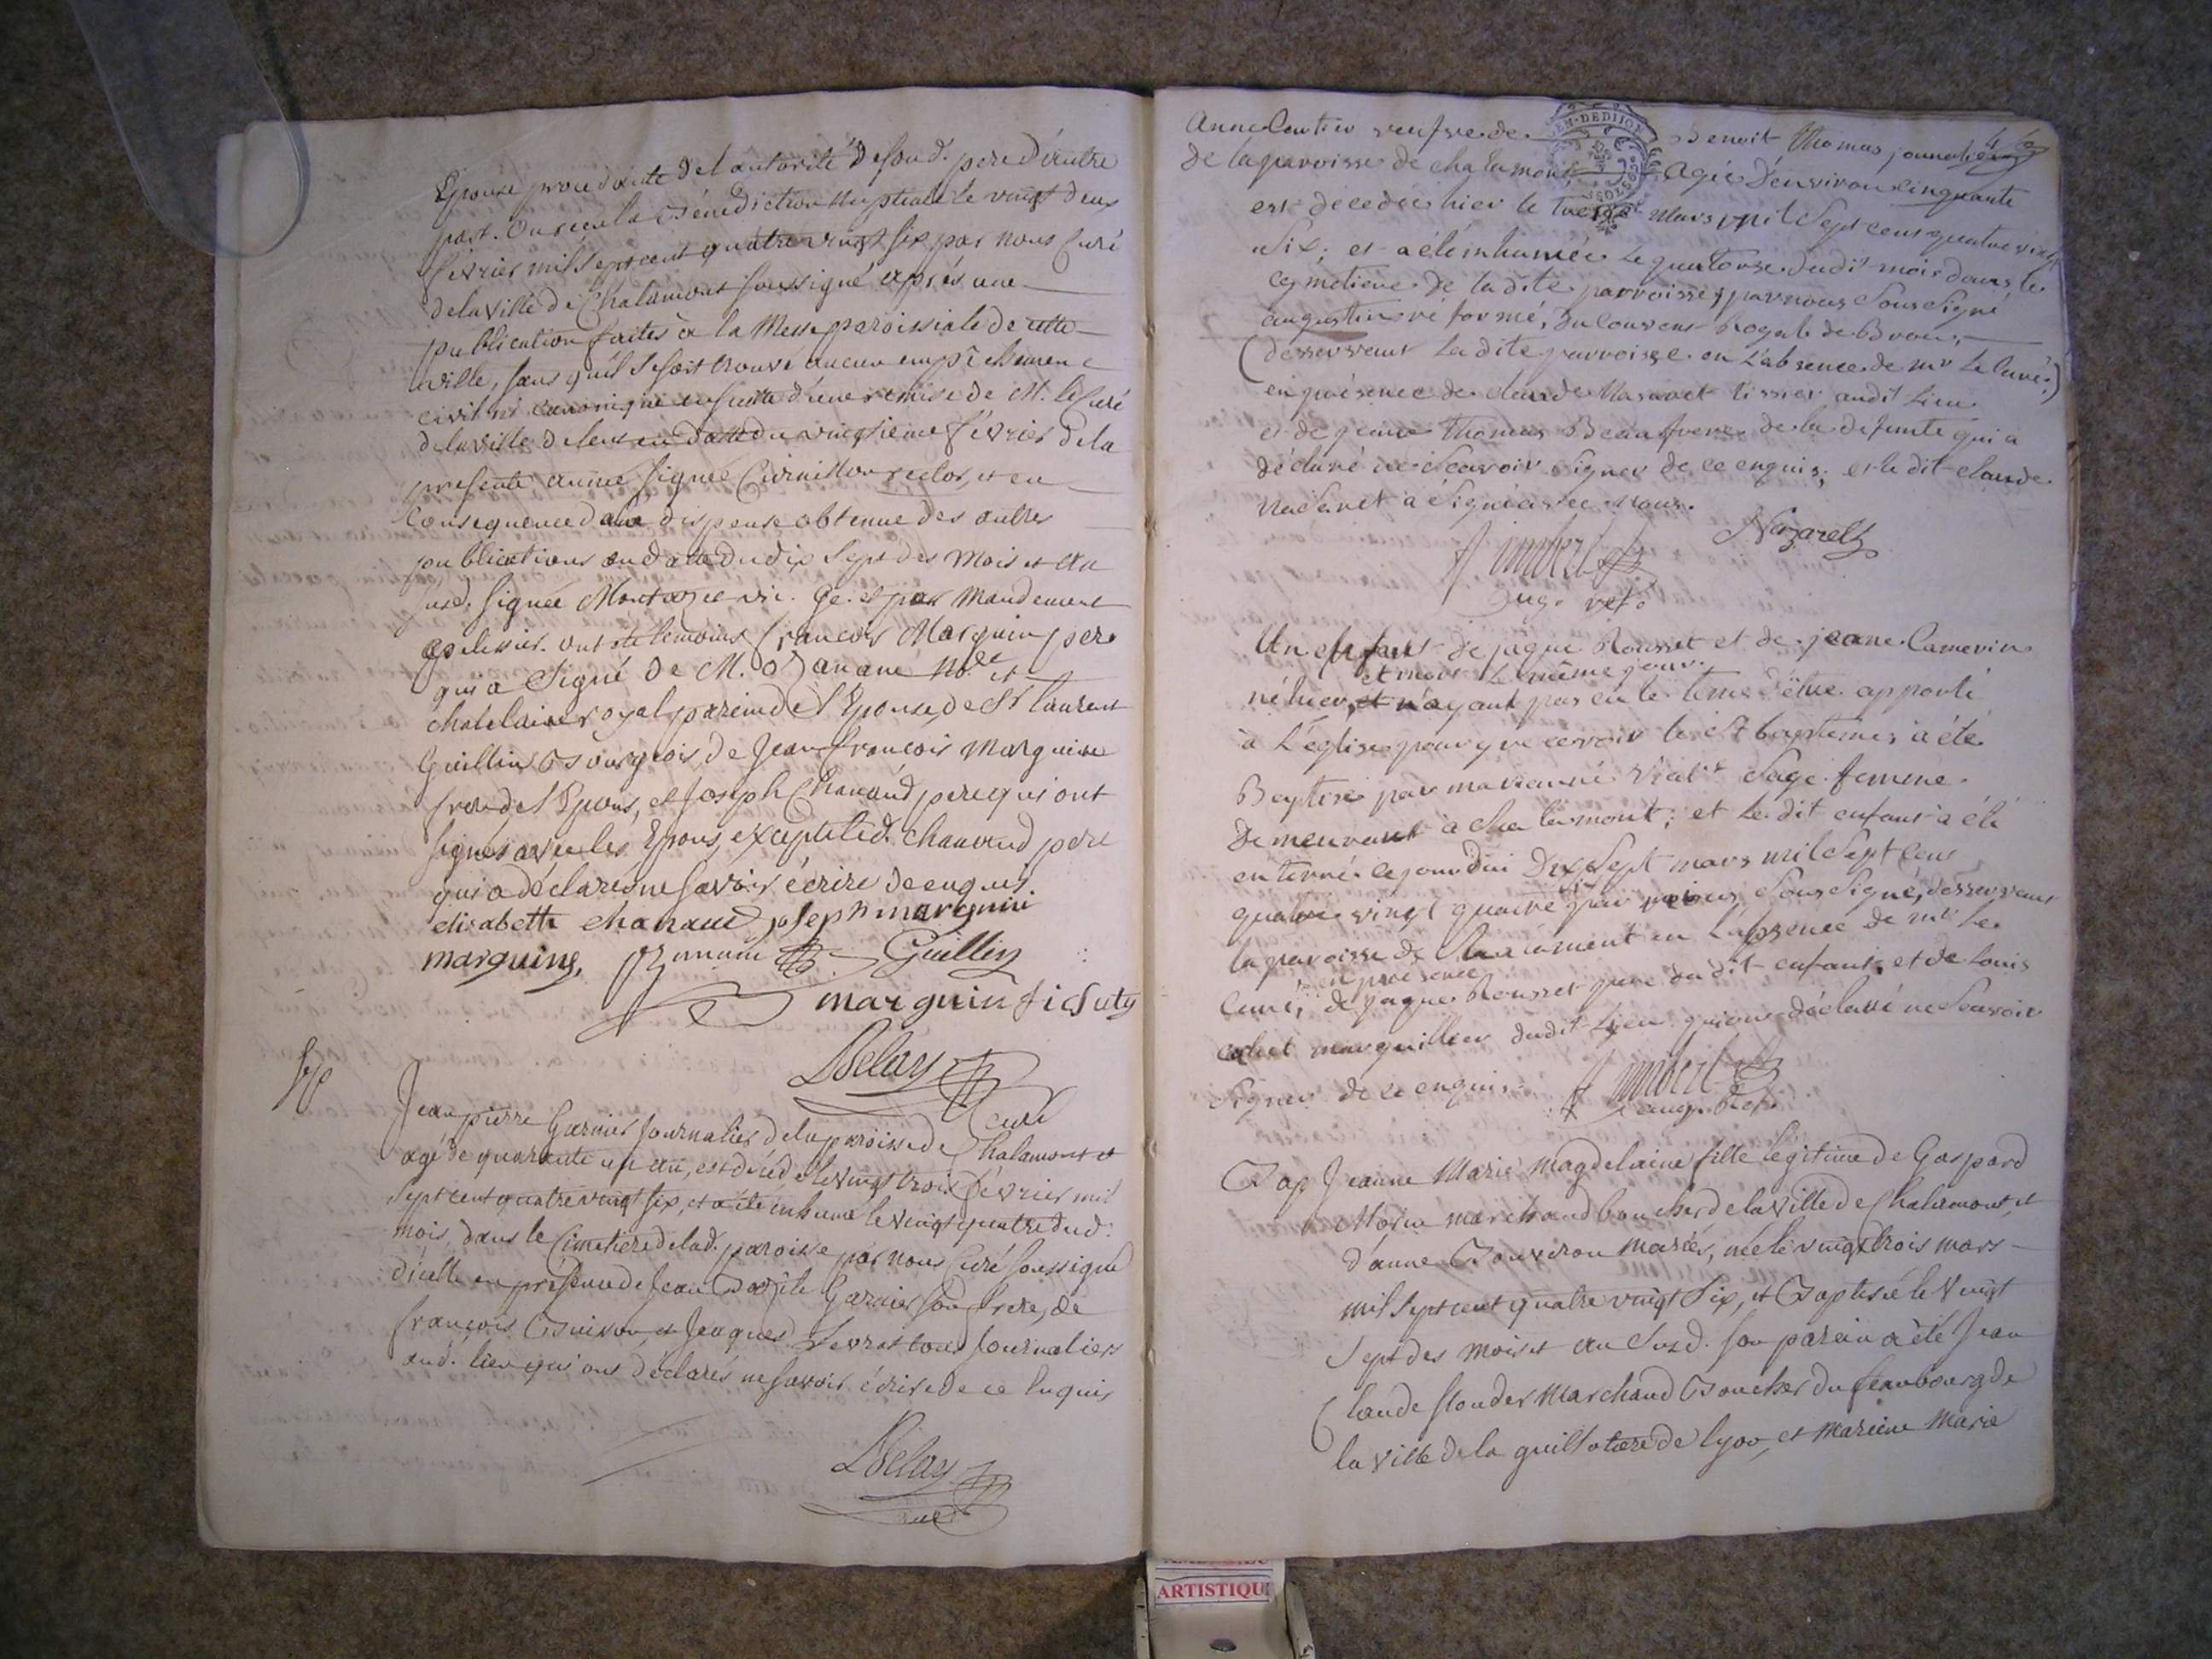 Epouse procedante de l'autorité de sond. pere d'autre
part. Ont recu la Bénédiction Nuptiale le vingt deux
février mil sept cent quatre vingt six par nous Curé
de la ville de Chalamont soussigné après une
publication faites à la Messe paroissiale de cette
ville, sans qu'il se soit trouvé aucun empêchement
civil ni canonique ensuite d'une remise de M. le Curé
de la ville de en datte du vingtieme février de la
presente année signée rector, et en
consequence d'une dispense obtenue des autres
publications en date du dix sept des mois et an
susd. signée vic. Ge. et par Mandement
ont ete temoins francois Marguin pere
qui a signé de M. No.re et
chatelain royal parein de l'Epouse, de St laurent
Guillin Bourgeois, de Jean francois Marguin
frere de l'Epoux, et Joseph Chanaud pere qui ont
signés avec les Epoux excepté led. Chanaud pere
qui a déclaré ne savoir écrire de enquis.
elisabeth chanaud joseph marguin
marguin, Guillin
marguin
Delay
curé
Jean pierre Garnier Journalier de la paroisse de Chalamont et
agé de quarante un an, est décedé le vingt trois février mil
sept cent quatre vingt six, et a été inhumé le vingt quatre dud.
mois, dans le Cimetiere de lad. paroisse par nous Curé soussigné
d'icelle en présence de Jean Garnier son frere, de
francois Buisson et Jacques tous Journaliers
aud. lieu qui ont déclarés ne savoir écrire de ce Enquis
Delay
curé
Anne veufve de Benoit Thomas journalier
de la paroisse de chalamont Agée D'environ cinquante
est décedée hier le treize Mars mil Sept cens quatre vingt
Six; et a été inhumée le quatorze dudit mois dans le
cymetiere de la dite parroisse, par nous Sous Signé
augustin réformé, du Couvent Royale de Brou,
(desservant la dite parroisse en l'absence de mr le Curé)
en présence de claude Nasaret tissier audit Lieu
et de jean Thomas Beaufrere de la defunte qui a
déclaré ne Scavoir Signer de ce enquis; et le dit claude
Nasaret a Signé avec Nous.
Nazaret
f imbert
aug. ref.
Un enfant de jaque Rousset et de jeanne Camerin
et mort le même jour.
né hier, et n'ayant pas eu le tems d'être apporté
à L'église pour y recevoir le St baptême, a été
Baptisé par marianne Sage femme
Demeurant à Chalamont; et Le dit enfant a été
enterré ce jourdui Dix Sept mars mil Sept Cens
quatre vingt par nous Sous Signé, desservant
la paroisse de Chalamont en L'absence de mr Le
en présence
Curé, de jaque Rousset pere du dit enfant, et de Louis
marguillier dudit Lieu qui ont déclaré ne Scavoir
Signer de ce enquis. f imbert
aug. ref.
Bap Jeanne Marie Magdelaine fille légitime de Gaspard
Morin marchand boucher de la ville de Chalamont, et
d'anne Bouveron Mariés, née le vingt trois mars
mil sept cent quatre vingt Six, et Baptisée le Vingt
Sept des mois et an Susd. son parein a été Jean
Claude flouder Marchand Boucher du feaubourg de
la ville de la guillotiere de lyon, et mareine Marie
ARTISTIQU